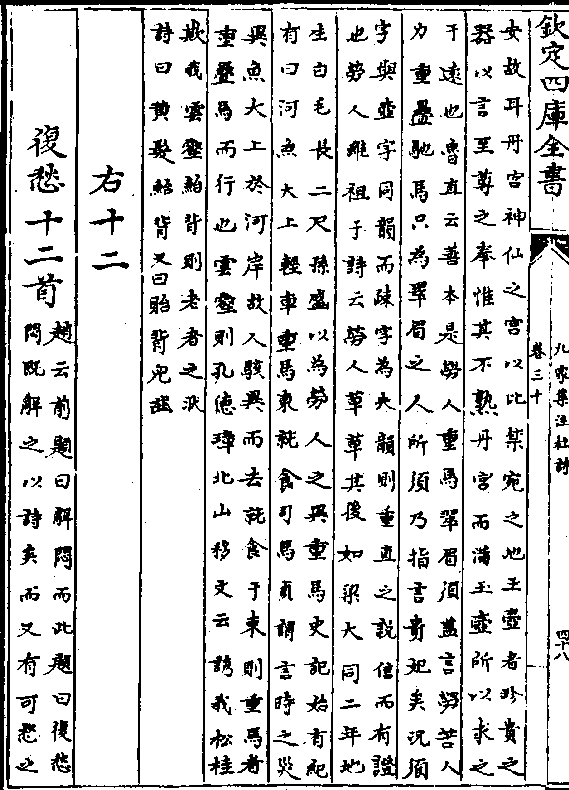 欽定四庫全書
卷三十
九家集注杜詩
四十八
女故耳丹宮神仙之宮以比禁宛之地玉壺者珍貴之
器以言至尊之奉惟其不熟丹宮而滿玉壺所以求之
于遠也魯直云善本是勞人重馬翠眉須蓋言勞苦人
力重疊馳馬只為翠眉之人所須乃指言貴妃矣況須
字與壺字同韻而疎字為大韻則重直之說信而有證
也勞人雖祖于詩云勞人草草其後如梁大同二年地
生白毛長二尺孫盛以為勞人之異重馬史記始有紀
有曰河魚大上輕車重馬東就食司馬貞謂言時之災
異魚大上於河岸故人駭異而去就食于東則重馬者
重疊馬而行也雲壑則孔德璋北山移文云誘我松桂
欺我雲壑鮐背則老者之狀
詩曰黄髮鮐背又曰貽背皃齒
右十二
復愁十二首
趙云前題曰解悶而此題曰復愁
悶既解之以詩矣而又有可愁之